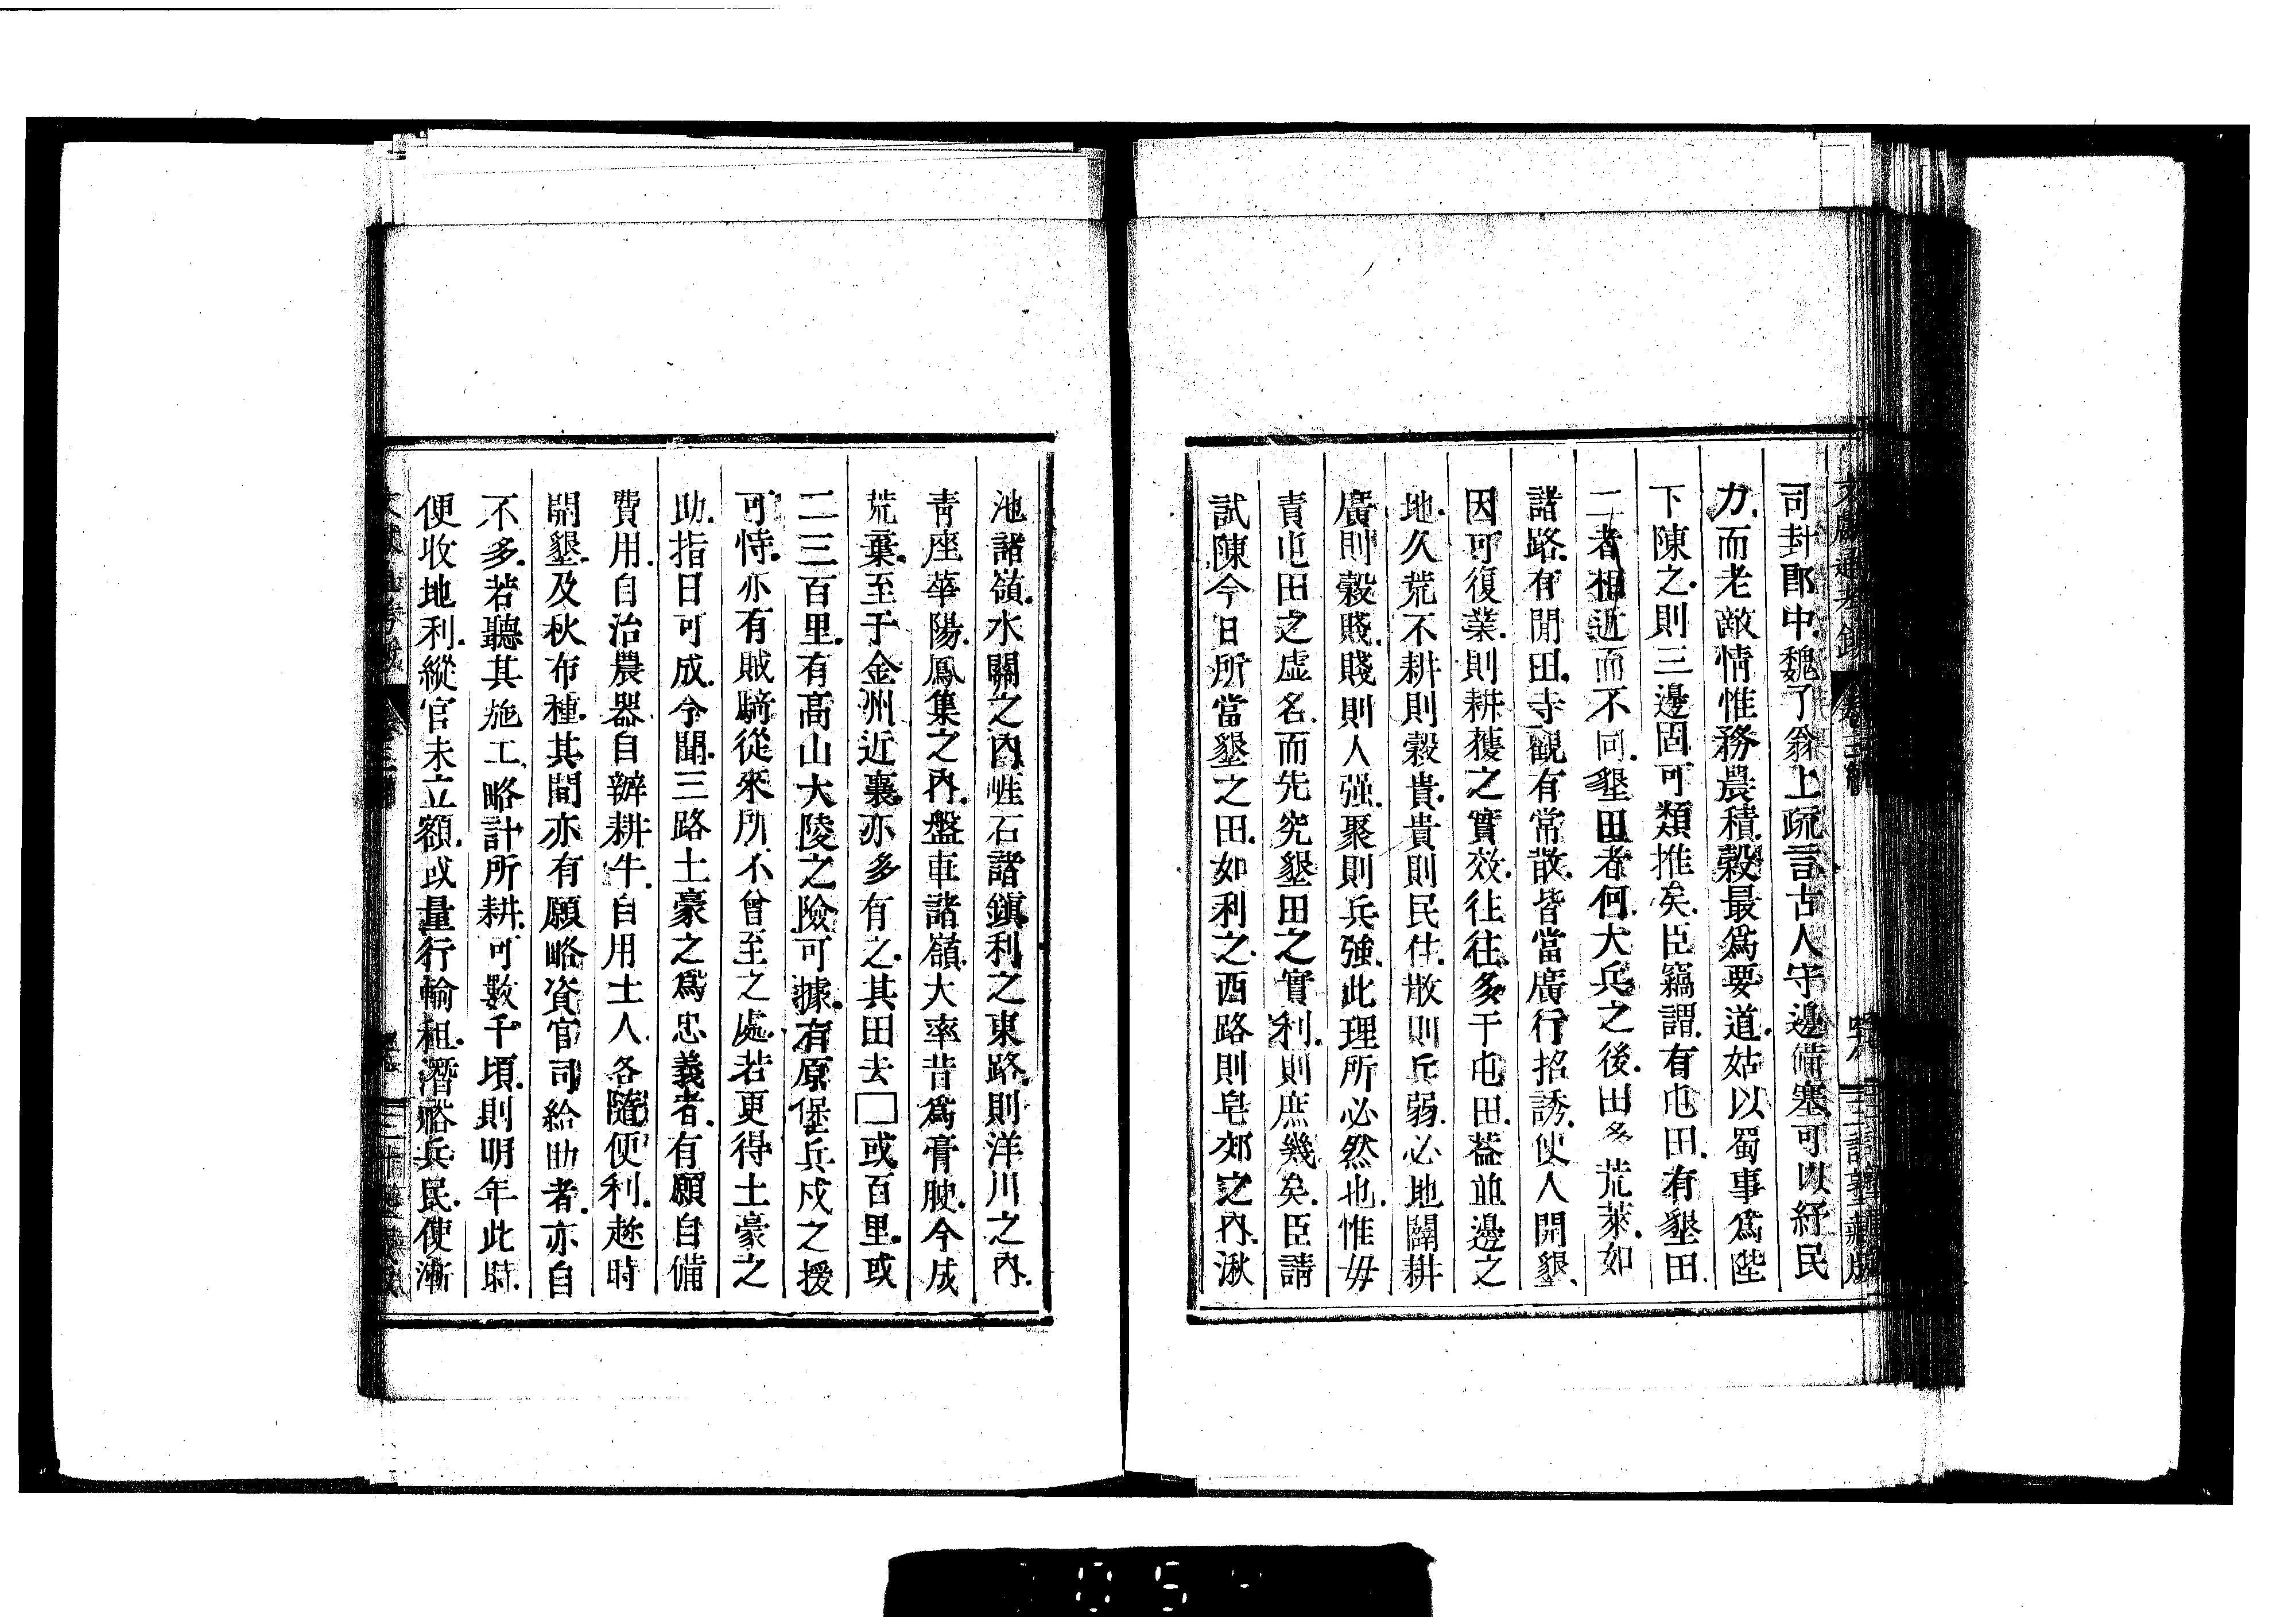 司封郎中魏了翁上疏言古人守邊備塞可以紓民
力而老敵情惟務農積穀最爲要道姑以蜀事爲陛
下陳之則三邊固可類推矣臣竊謂有屯田有墾田
二者相近而不同墾田者何大兵之後田多荒萊如
諸路有閒田寺觀有常散皆當廣行招誘使人開墾
因可復業則耕穫之實效往往多于屯田葢並邊之
地久荒不耕則穀貴貴則民住散則兵弱必地闢耕
廣則穀賤賤則人强聚則兵強此理所必然也惟毋
責屯田之虛名而先究墾田之實利則庶幾矣臣請
試陳今日所當墾之田如利之西路則皂郊之內湫
池諸嶺水關之內崖石諸鎮利之東路則洋川之內
青座華陽鳳集之內盤車諸嶺大率昔爲膏腴今成
荒棄至于金州近襄亦多有之其田去□或百里或
二三百里有高山大陵之險可據有原堡兵戍之援
可恃亦有賊騎從來所不曾至之處若更得土豪之
助指日可成今聞三路土豪之爲忠義者有願自備
費用自治農器自辦耕牛自用土人各隨便利趂時
開墾及秋布種其間亦有願略資官司給助者亦自
不多若聽其施工略計所耕可數千頃則明年此時
便收地利縱官未立額或量行輸租潛賂兵民使漸